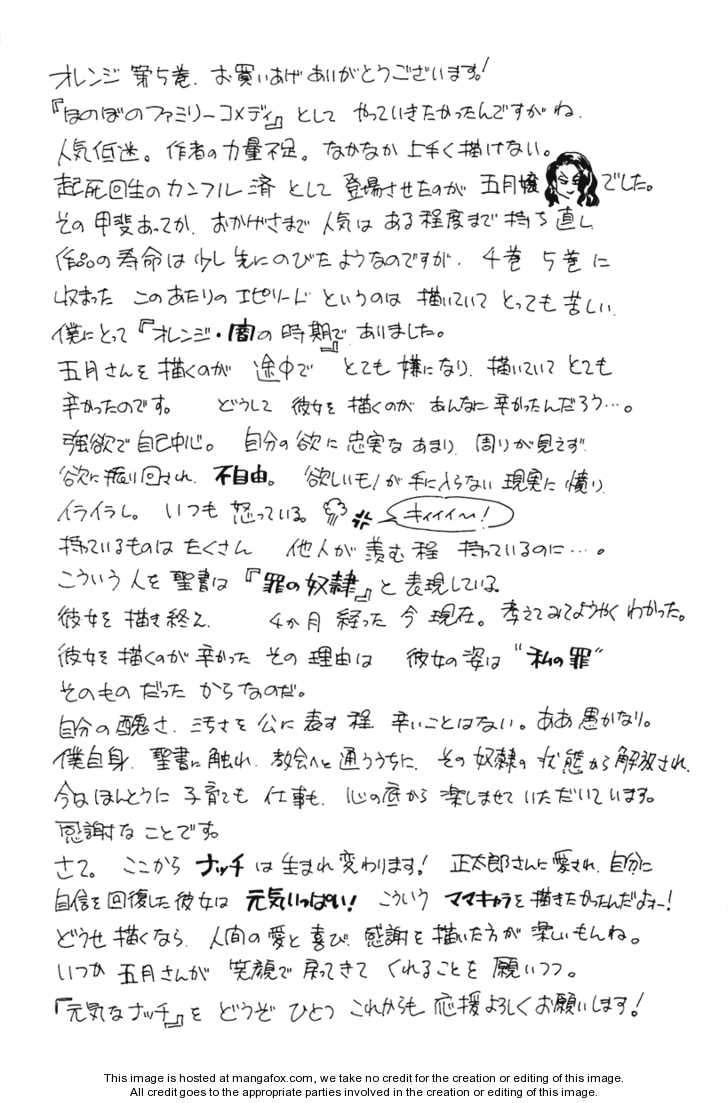 オレンジ 第5巻、お買いあげありがとうございます!
『ほのぼのファミリーコメディ』として やっていきたかったんですがね、
人気低迷。作者の力量不足。なかなか上手く描けない。
起死回生のカンフル済 として 登場させたのが 五月嬢でした。
その甲斐あってか、おかげさまで 人気は ある程度まで持ち直し
作品の寿命は少し先にのびたようなのですが、4巻 5巻に
収まった このあたりのエピソード というのは 描いていて とっても苦しい、
僕にとって『オレンジ・闇の時期』でありました。
五月さんを描くのが 途中で とても嫌になり、描いていて とても
辛かったのです。 どうして 彼女を描くのが あんなに辛かったんだろう…。
強欲で自己中心。自分の欲に忠実なあまり、周りが見えず
欲に振り回され、不自由。欲しいモノが手に入らない現実に憤り、
イライラし。いつも怒っている。 キィイイ〜!
持っているものは たくさん 他人が羨む程 持っているのに…。
こういう人を聖書は『罪の奴隷』と表現している。
彼女を描き終え、 4か月経った 今現在。考えてみてようやくわかった。
彼女を描くのが辛かった その理由は 彼女の姿は "私の罪"
そのものだったからなのだ。
自分の醜さ、汚さを公に表す程 辛いことはない。ああ愚かなり。
僕自身、聖書に触れ、教会へと通ううちに、その奴隷の状態から解放され、
今はほんとうに 子育ても 仕事も、心の底から楽しませていただいています。
感謝なことです。
さて。ここから ナッチ は生まれ変わります! 正太郎さんに愛され、自分に
自信を回復した彼女は 元気いっぱい! こういう ママキャラを描きたかったんだよォー!
どうせ描くなら、人間の愛と喜び、感謝を描いた方が楽しいもんね。
いつか五月さんが 笑顔で戻ってきて くれることを願いつつ。
『元気なナッチ』を どうぞ ひとつ これからも 応援よろしくお願いします!
This image is hosted at mangafox.com, we take no credit for the creation or editing of this image.
All credit goes to the appropriate parties involved in the creation or editing of this image.